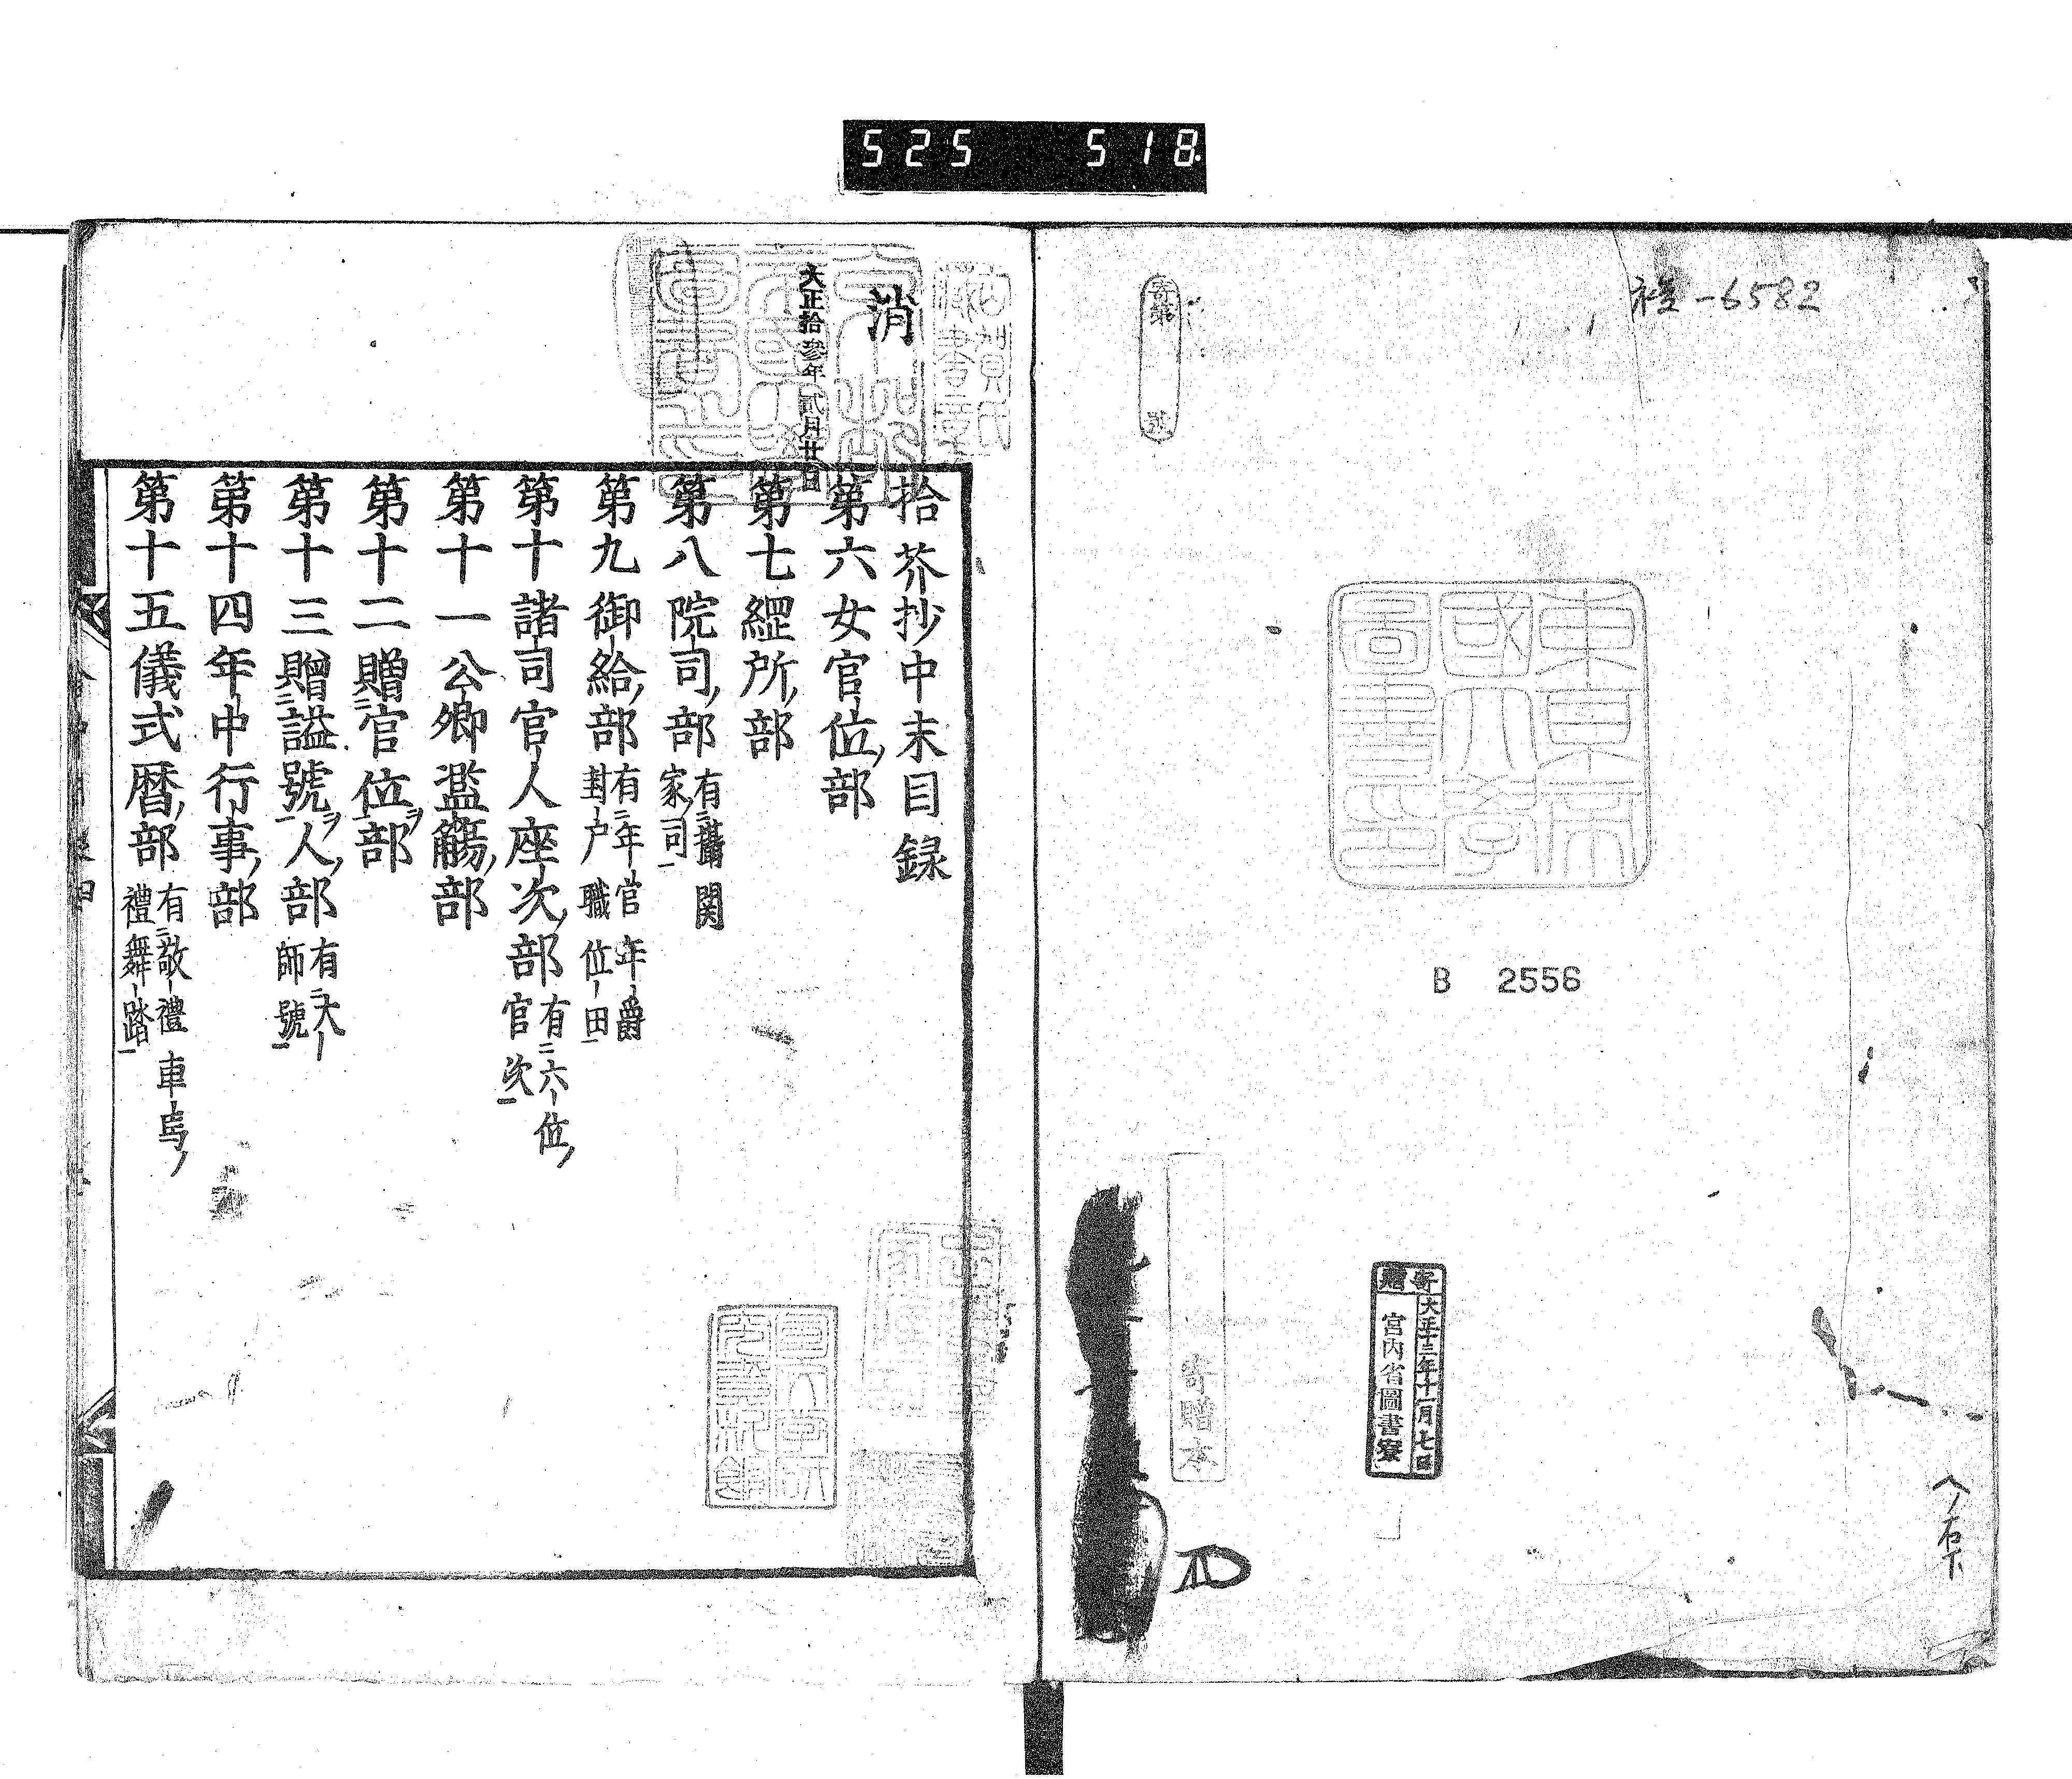 525 518
社-6582
寄第 號
東京帝國大學圖書印
B 2556
寄贈
大正十三年十一月七日
宮内省圖書寮
寄贈本
ヘノ石下
古賀氏藏書章
消
大正拾參年貳月廿日
拾芥抄中末目録
第六女官位部
第七經所部
第八院司部 有攝関家司
第九御給部 有年官年爵封戸職位田
第十諸司官人座次部 有六位官次
第十一公卿濫觴部
第十二贈官位部
第十三贈謚號人部 有大師號
第十四年中行事部
第十五儀式暦部 有敬禮車禮舞踏